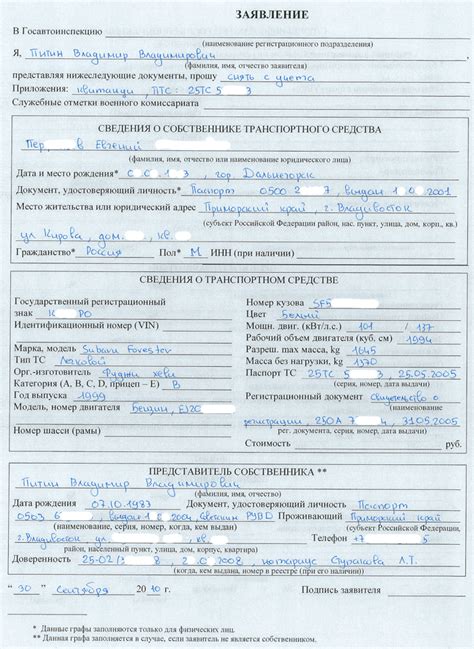 ЗАЯВЛЕНИЕ
В Госавтоинспекцию
(наименование регистрационного подразделения)
Я, Питин Владимир Владимирович
(фамилия, имя, отчество заявителя)
представляя нижеследующие документы, прошу снять с учета
Приложения: квитанции, ПТС: 25ТС 5 3
Служебные отметки военного комиссариата
СВЕДЕНИЯ О СОБСТВЕННИКЕ ТРАНСПОРТНОГО СРЕДСТВА
Пер в Евгений
(фамилия, имя, отчество или наименование юридического лица)
Дата и место рождения* гор. Дальнегорск
Документ, удостоверяющий личность* Паспорт 0500 2 7, выдан 1 0 2001
Место жительства или юридический адрес Приморский край, г. Владивосток
(субъект Российской Федерации район, нас. пункт, улица, дом, корп., кв.)
ул Кирова, дом. , кв.
Гражданство* Россия Пол* М ИНН (при наличии)
СВЕДЕНИЯ О ТРАНСПОРТНОМ СРЕДСТВЕ
Государственный регистрационный
знак К РО
Идентификационный номер (VIN)
Марка, модель Subaru Forester
Тип ТС Легковой
Орг.-изготовитель Фуджи хеви
Категория (А, В, С, D, прицеп – Е) В
Год выпуска 1999
Модель, номер двигателя Бензин, EJ20
Номер шасси (рамы)
Номер кузова SF5
Цвет Белый
Мощн. двиг. (кВт/л.с.) 101 / 137
Рабочий объем двигателя (куб. см) 1994
Разреш. max масса, кг 1645
Масса без нагрузки, кг 1370
Паспорт ТС 25ТС 5 3, 25.05.2005
(серия, номер, дата выдачи)
Регистрационный документ Свидетельство о
(наименование
регистрации, 250А 7 4, 31.05.2005
рег. документа, серия, номер, дата выдачи)
Стоимость руб.
ПРЕДСТАВИТЕЛЬ СОБСТВЕННИКА **
Питин Владимир Владимирович
(фамилия, имя, отчество)
Дата рождения 07.10.1983 Документ, удостоверяющий личность Паспорт
0503 6 , выдан 1 2004, РУВД Проживающий Приморский край
(наименование, серия, номер, когда, кем выдан) (субъект Российской Федерации
г. Владивосток, ул. , кв. Телефон +7 5
район, населенный пункт, улица, дом, корпус, квартира)
Доверенность 25-02/ 8, 2 2008, нотариус Л.Т.
(когда, кем выдана, номер в реестре (при его наличии))
" 30 " сентября 2010 г. Подпись заявителя
* Данные графы заполняются только для физических лиц.
** Данная графа заполняется в случае, если заявитель не является собственником.